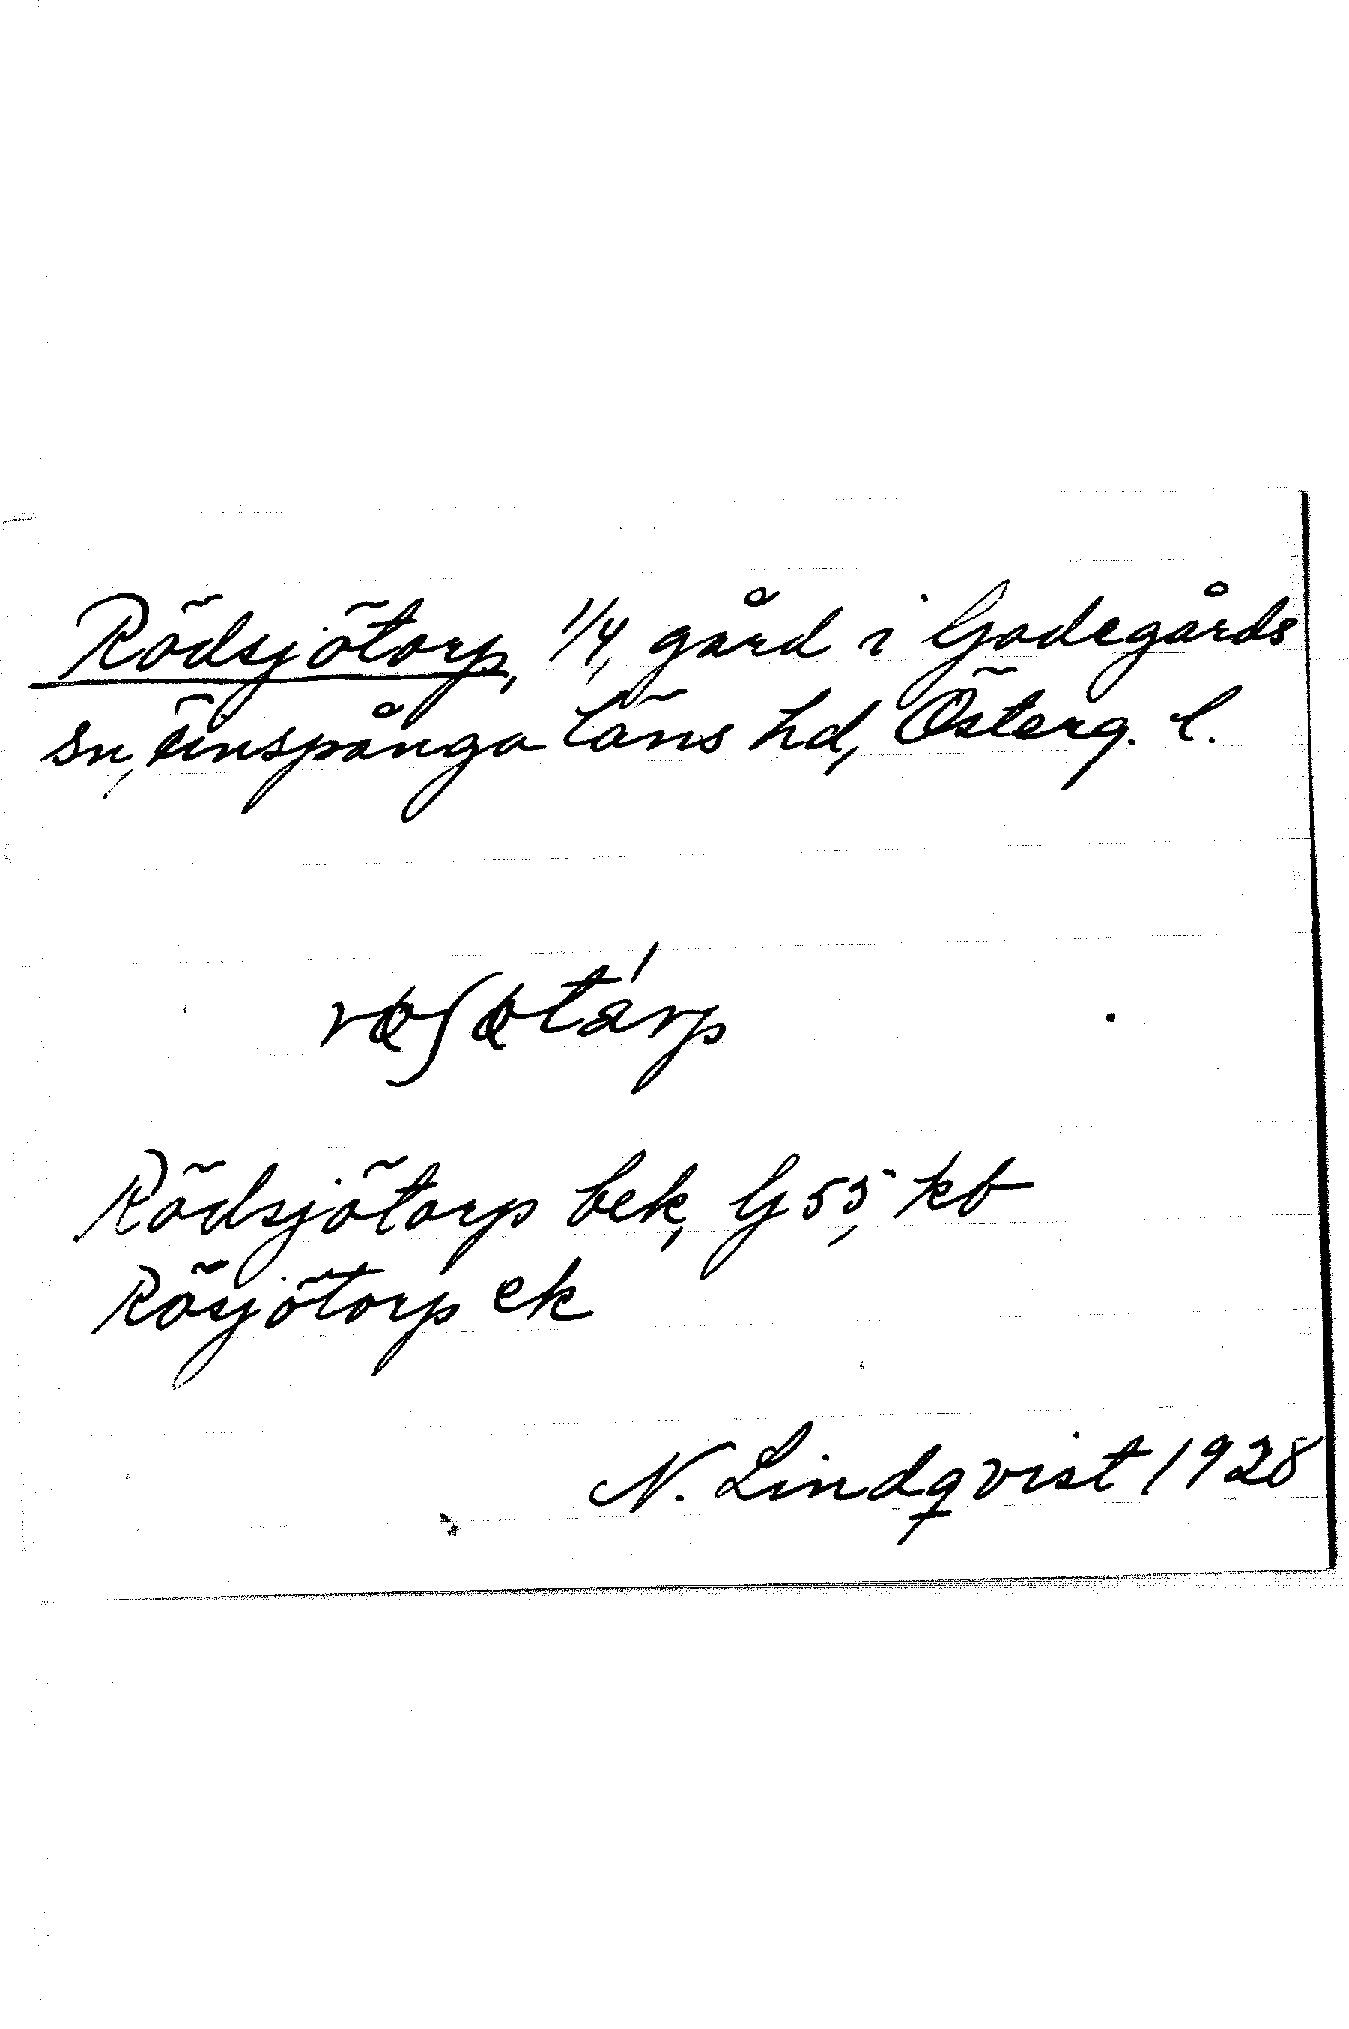 Rödsjötorp, 1/4, gård i Godegårds
sn, Finspånga läns hd, Österg. l.
røʃøtárp
Rödsjötorp bek, G 55, kb
Rösjötorp ek
N. Lindqvist 1928